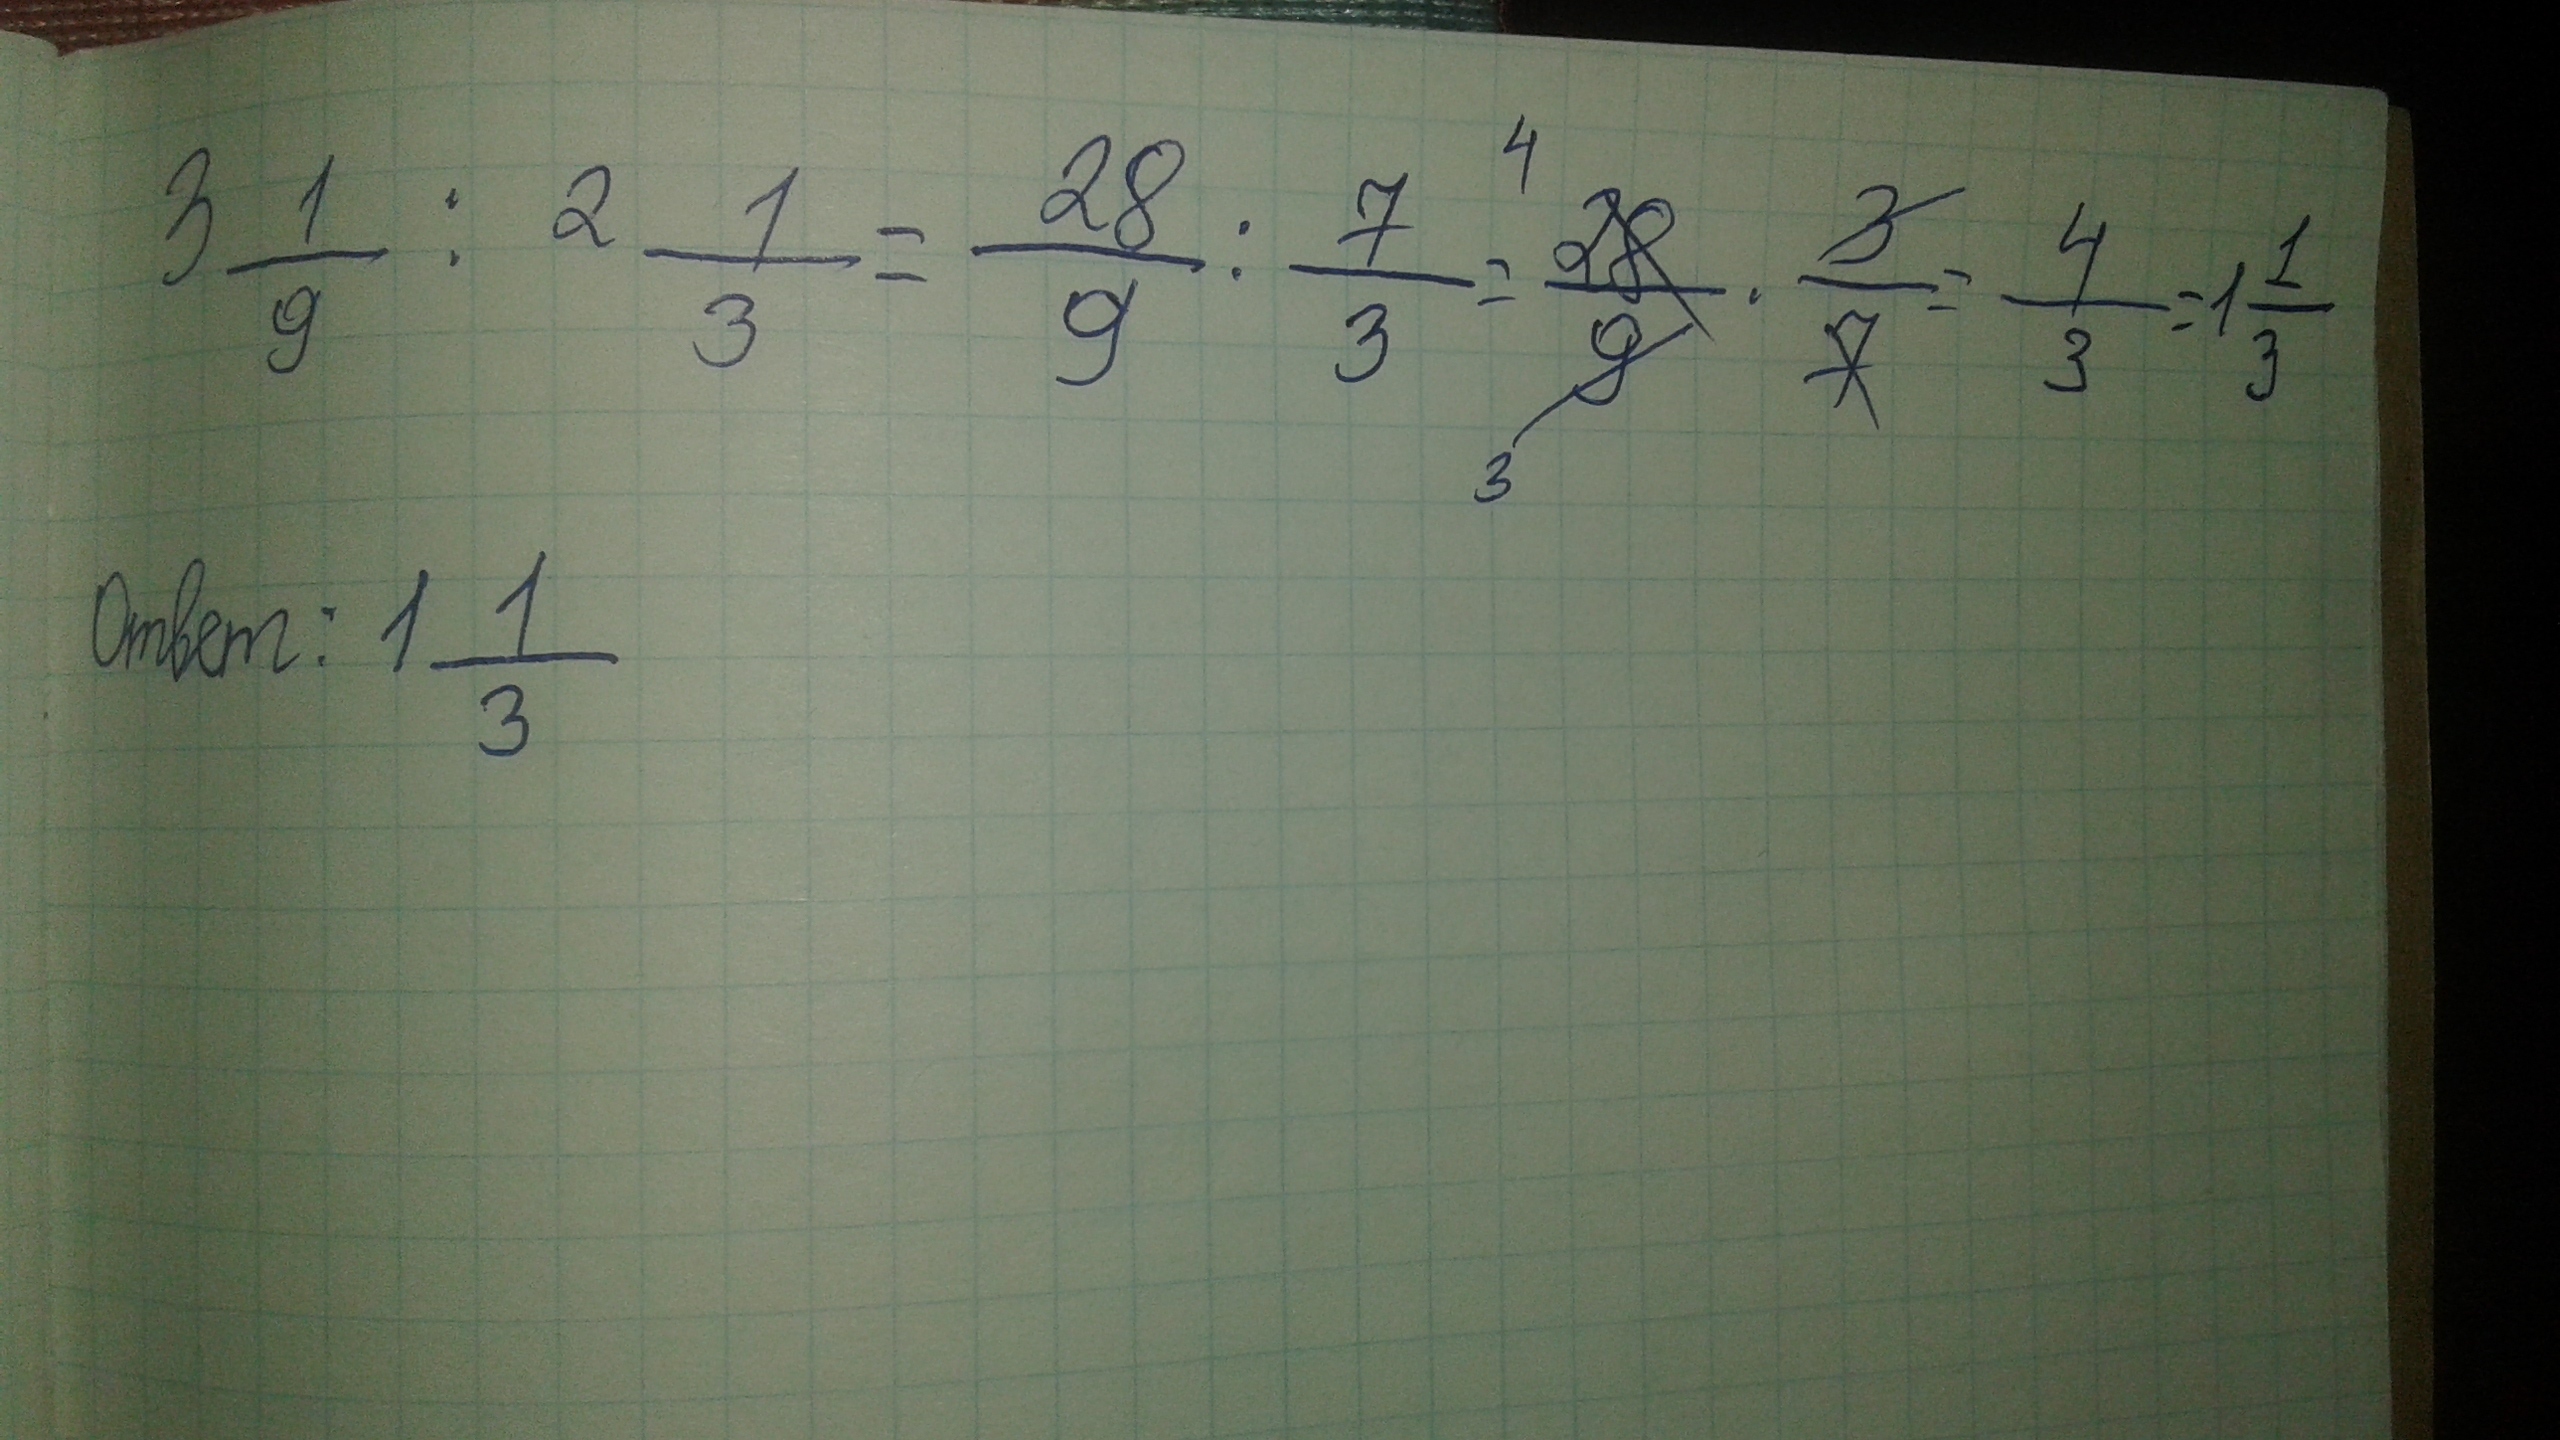 3 1/9 : 2 1/3 = 28/9 : 7/3 = 4 28/9 3 · 3/7 = 4/3 = 1 1/3
Ответ: 1 1/3